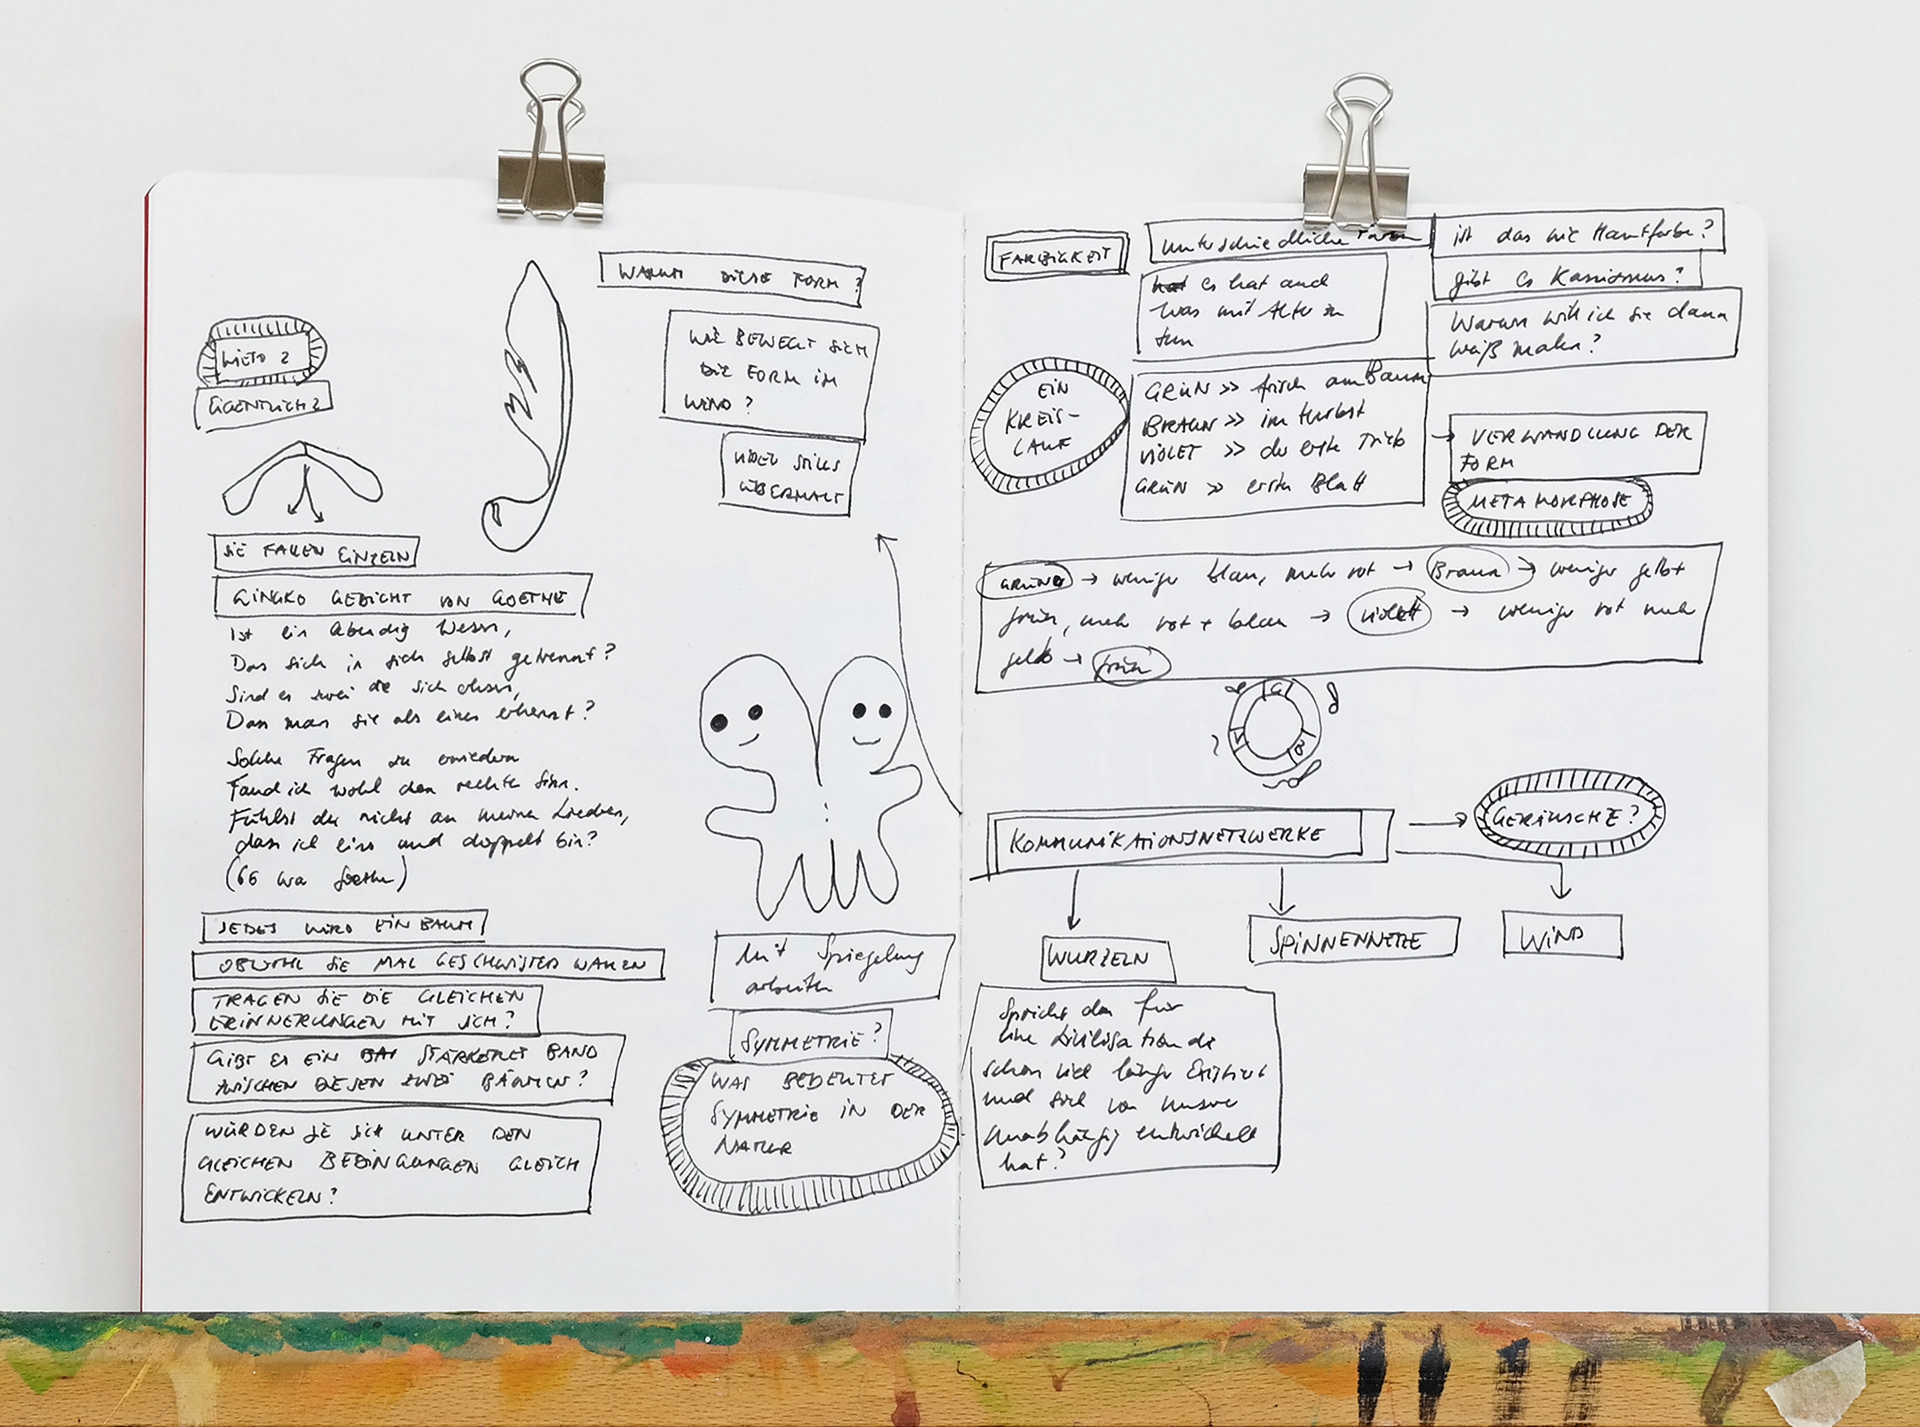 WIESO 2
EIGENTLICH 2
SIE FALLEN EINZELN
GINGKO GEDICHT VON GOETHE
Ist ein lebendig Wesen,
Das sich in sich selbst getrennt?
Sind es zwei die sich
Das man sie als eines erkennt?
Solche Fragen zu erwiedern
Fand ich wohl den rechten Sinn.
Fühlst du nicht an meinen Liedern,
dass ich eins und doppelt bin?
(66 war Goethe)
JEDES WIRD EIN BAUM
OBWOHL SIE MAL GESCHWISTER WAREN
TRAGEN SIE DIE GLEICHEN
ERINNERUNGEN MIT SICH?
GIBT ES EIN STÄRKERES BAND
ZWISCHEN DIESEN ZWEI BÄUMEN?
WÜRDEN SIE SICH UNTER DEN
GLEICHEN BEDINGUNGEN GLEICH
ENTWICKELN?
WARUM DIESE FORM?
WIE BEWEGT SICH
DIE FORM IM
WIND?
VIDEO STILLS
ÜBERMALT
Mit Spiegelung
arbeiten
SYMMETRIE?
WAS BEDEUTET
SYMMETRIE IN DER
NATUR
FARBIGKEIT
unterschiedliche Farben
hat es hat auch
was mit Alter zu
tun
ist das wie Hautfarbe?
gibt es Rassismus?
Warum will ich sie dann
weiß malen?
EIN
KREIS-
LAUF
GRÜN >> frisch am Baum
BRAUN >> im Herbst
VIOLET >> der erste Trieb
GRÜN >> erste Blatt
→ VERWANDLUNG DER
FORM
METAMORPHOSE
GRÜN → weniger blau, mehr rot → Braun → weniger gelb+
grün, mehr rot + blau → violett → weniger rot mehr
gelb → grün
G
B
V
KOMMUNIKATIONSNETZWERKE
GERÄUSCHE?
WURZELN
SPINNENNETZE
WIND
Spricht das für
eine Zivilisation die
schon viel länger Existiert
und sich von unserer
unabhängig entwickelt
hat?